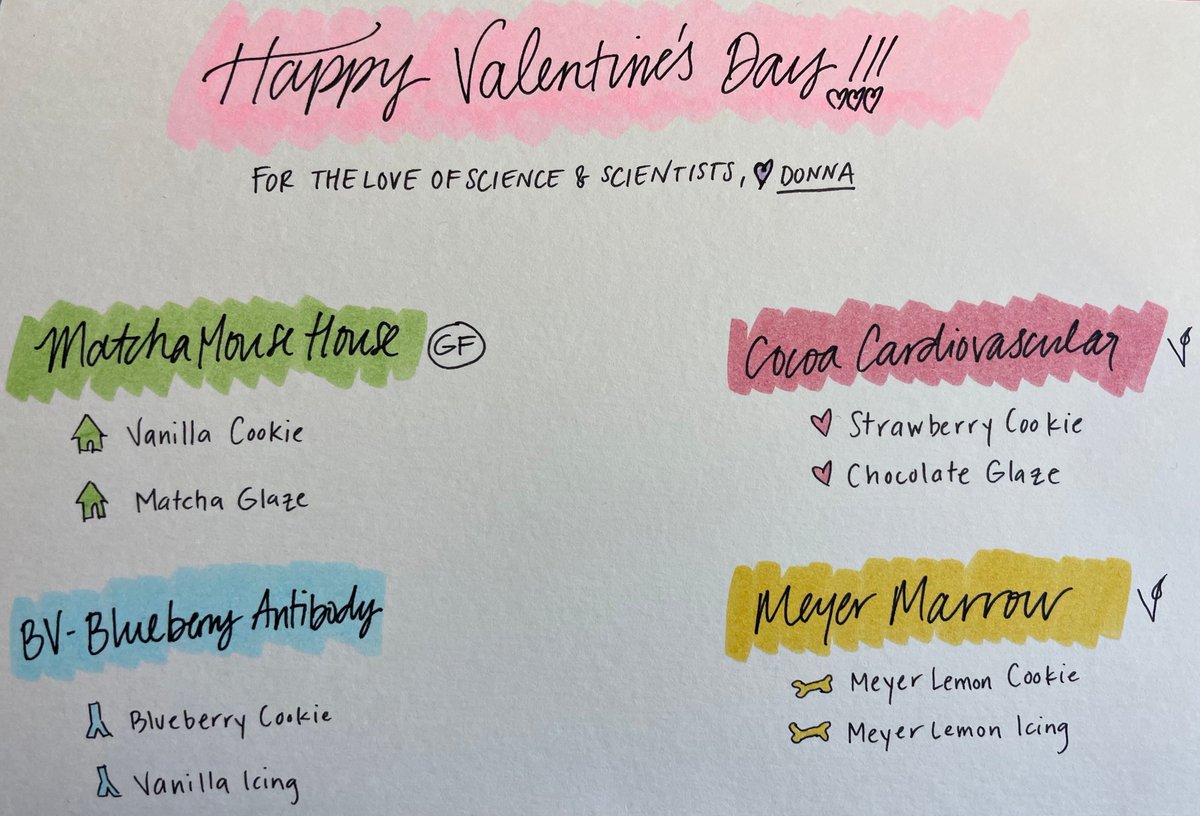 Happy Valentine's Day!!!
FOR THE LOVE OF SCIENCE & SCIENTISTS, DONNA
Matcha Mouse House GF
Vanilla Cookie
Matcha Glaze
Cocoa Cardiovascular V
Strawberry Cookie
Chocolate Glaze
BV-Blueberry Antibody
Blueberry Cookie
Vanilla Icing
Meyer Marrow V
Meyer Lemon Cookie
Meyer Lemon Icing